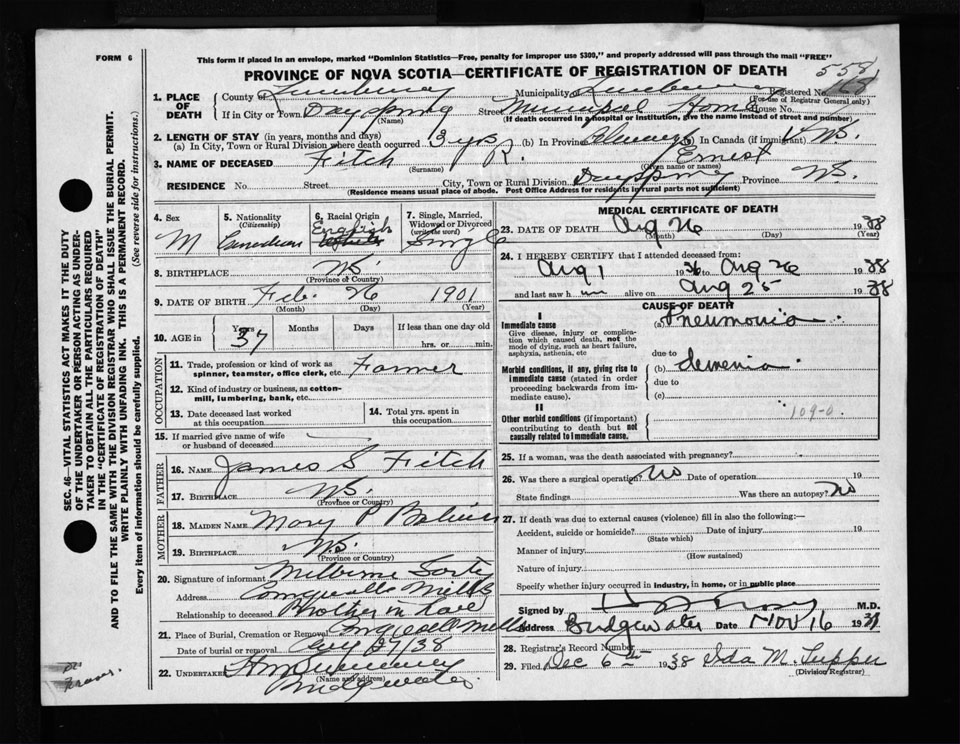 FORM 6
This form if placed in an envelope, marked "Dominion Statistics—Free, penalty for improper use $300," and properly addressed will pass through the mail "FREE"
PROVINCE OF NOVA SCOTIA—CERTIFICATE OF REGISTRATION OF DEATH
558
1. PLACE OF DEATH
County of Lunenburg Municipality Lunenburg Registered No. 168
(For use of Registrar General only)
If in City or Town Dayspring Street Municipal Home House No.
(Name) (If death occurred in a hospital or institution, give the name instead of street and number)
2. LENGTH OF STAY (in years, months and days)
(a) In City, Town or Rural Division where death occurred 3 yrs (b) In Province Always (b) In Canada (if immigrant) N.S.
3. NAME OF DECEASED Fitch R. Ernest
(Surname) (Given name or names)
RESIDENCE No. Street City, Town or Rural Division Dayspring Province N.S.
(Residence means usual place of abode. Post Office Address for residents in rural parts not sufficient)
4. Sex M
5. Nationality (Citizenship) Canadian
6. Racial Origin English White
7. Single, Married, Widowed or Divorced (write the word) Single
8. BIRTHPLACE N.S.
(Province or Country)
9. DATE OF BIRTH Feb. 26 1901
(Month) (Day) (Year)
10. AGE in Years 37 Months Days If less than one day old
hrs. or min.
OCCUPATION
11. Trade, profession or kind of work as spinner, teamster, office clerk, etc. Farmer
12. Kind of industry or business, as cotton-mill, lumbering, bank, etc.
13. Date deceased last worked at this occupation
14. Total yrs. spent in this occupation
15. If married give name of wife or husband of deceased
FATHER
16. NAME James S Fitch
17. BIRTHPLACE N.S.
(Province or Country)
MOTHER
18. MAIDEN NAME Mary P
19. BIRTHPLACE N.S.
(Province or Country)
20. Signature of informant Milburne
Address Mills
Relationship to deceased Brother in Law
21. Place of Burial, Cremation or Removal Mills
Date of burial or removal Aug 27/38
22. UNDERTAKER
(Name and address)
Bridgewater
MEDICAL CERTIFICATE OF DEATH
23. DATE OF DEATH Aug 26 1938
(Month) (Day) (Year)
24. I HEREBY CERTIFY that I attended deceased from:
Aug 1 1936 to Aug 26 1938
and last saw him alive on Aug 25 1938
CAUSE OF DEATH
I
Immediate cause
Give disease, injury or complication which caused death, not the mode of dying, such as heart failure, asphyxia, asthenia, etc
(a) Pneumonia
due to
Morbid conditions, if any, giving rise to immediate cause (stated in order proceeding backwards from immediate cause).
(b) demenia
due to
(c)
II
Other morbid conditions (if important) contributing to death but not causally related to immediate cause.
109-0
25. If a woman, was the death associated with pregnancy?
26. Was there a surgical operation? No Date of operation 19
State findings Was there an autopsy? No
27. If death was due to external causes (violence) fill in also the following:—
Accident, suicide or homicide? Date of injury 19
(State which)
Manner of injury
(How sustained)
Nature of injury
Specify whether injury occurred in industry, in home, or in public place
Signed by M.D.
Address Bridgewater Date Nov 16 1938
28. Registrar's Record Number
29. Filed Dec 6th 1938 Ida M. Tupper
(Division Registrar)
SEC. 46—VITAL STATISTICS ACT MAKES IT THE DUTY
OF THE UNDERTAKER OR PERSON ACTING AS UNDER-
TAKER TO OBTAIN ALL THE PARTICULARS REQUIRED
IN THE "CERTIFICATE OF REGISTRATION OF DEATH"
AND TO FILE THE SAME WITH THE DIVISION REGISTRAR WHO SHALL ISSUE THE BURIAL PERMIT.
WRITE PLAINLY WITH UNFADING INK. THIS IS A PERMANENT RECORD.
Every item of information should be carefully supplied. (See reverse side for instructions.)